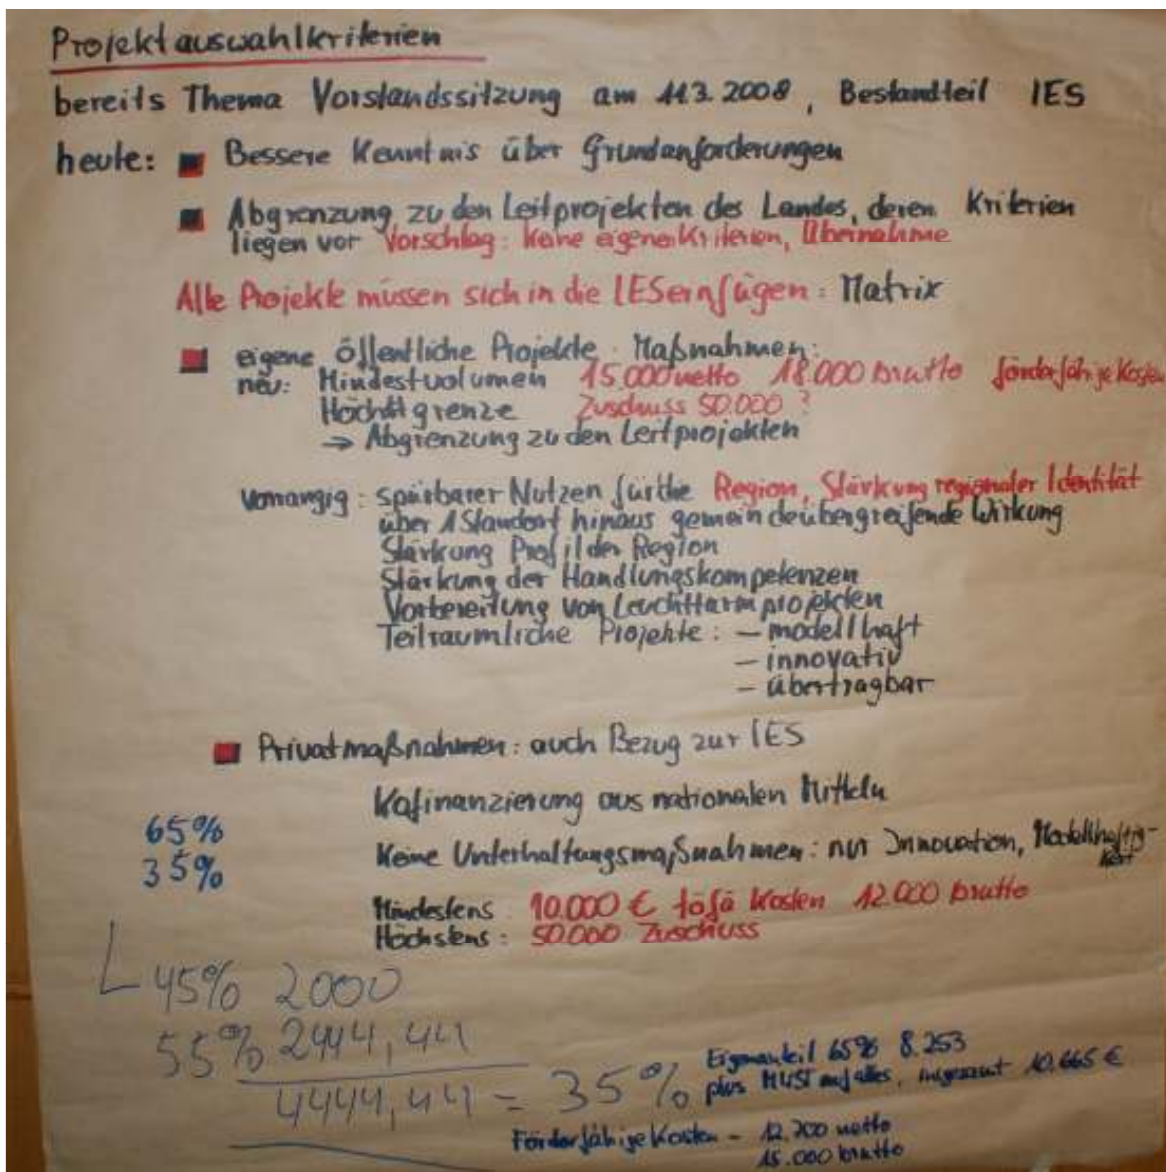 Projektauswahlkriterien
bereits Thema Vorstandssitzung am 11.3.2008, Bestandteil IES
heute: Bessere Kenntnis über Grundanforderungen
Abgrenzung zu den Leitprojekten des Landes, deren Kriterien
liegen vor Vorschlag: Keine eigenen Kriterien, Übernahme
Alle Projekte müssen sich in die LES einfügen: Matrix
eigene öffentliche Projekte Maßnahmen:
neu: Mindestvolumen 15.000 netto 18.000 brutto förderfähige Kosten
Höchstgrenze Zuschuss 50.000 ?
→ Abgrenzung zu den Leitprojekten
vorrangig: spürbarer Nutzen für die Region, Stärkung regionaler Identität
über 1 Standort hinaus gemeindeübergreifende Wirkung
Stärkung Profil der Region
Stärkung der Handlungskompetenzen
Vorbereitung von Leuchtturmprojekten
Teilräumliche Projekte: – modellhaft
– innovativ
– übertragbar
Privatmaßnahmen: auch Bezug zur IES
Kofinanzierung aus nationalen Mitteln
65%
35%
Keine Unterhaltungsmaßnahmen: nur Innovation, Modellhaftig-
keit
Mindestens 10.000 € föfä Kosten 12.000 brutto
Höchstens: 50.000 Zuschuss
45% 2000
55% 2444,44
4444,44 = 35%
Eigenanteil 65% 8.253
plus MWST auf alles, insgesamt 10.665 €
Förderfähige Kosten – 12.700 netto
15.000 brutto